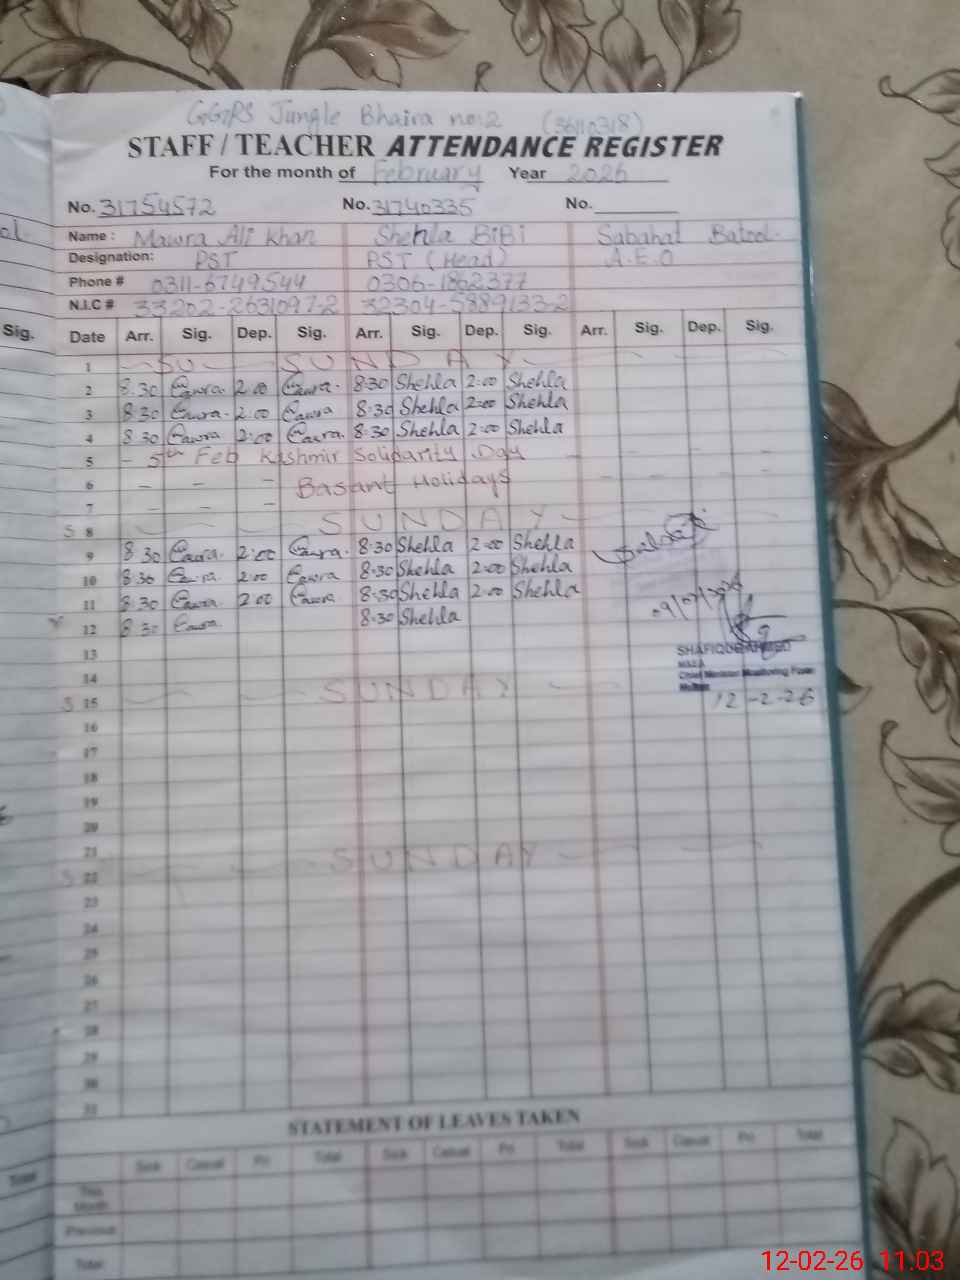 GGPS Jungle Bhaira no:2 (36110318)
STAFF / TEACHER ATTENDANCE REGISTER
For the month of February Year 2026
No. 31754572 No. 31740335 No.
Name : Mawra Ali Khan Shehla BiBi Sabahat Batool
Designation: PST PST (Head) A.E.O
Phone # 0311-6749544 0306-1862377
N.I.C # 33202-2631097-2 32304-5889133-2
Sig. Date Arr. Sig. Dep. Sig. Arr. Sig. Dep. Sig. Arr. Sig. Dep. Sig.
1 SUNDAY
2 8:30 2:00 8:30 Shehla 2:00 Shehla
3 8:30 2:00 8:30 Shehla 2:00 Shehla
4 8:30 2:00 8:30 Shehla 2:00 Shehla
5 - 5th Feb Kashmir Solidarity Day -
6 - - - Basant Holidays - - -
7 - - -
S 8 SUNDAY
9 8:30 2:00 8:30 Shehla 2:00 Shehla
10 8:30 2:00 8:30 Shehla 2:00 Shehla
11 8:30 2:00 8:30 Shehla 2:00 Shehla
12 8:30 8:30 Shehla
13 SHAFIQUE AHMED
M.E.A
14 Chief Minister Monitoring Force
S 15 SUNDAY 12-2-26
16
17
18
19
20
21 SUNDAY
S 22
23
24
25
26
27
28
29
30
31
STATEMENT OF LEAVES TAKEN
Sick Casual Pri Total Sick Casual Pri Total Sick Casual Pri Total
This Month
Previous
Total Total
12-02-26 11.03